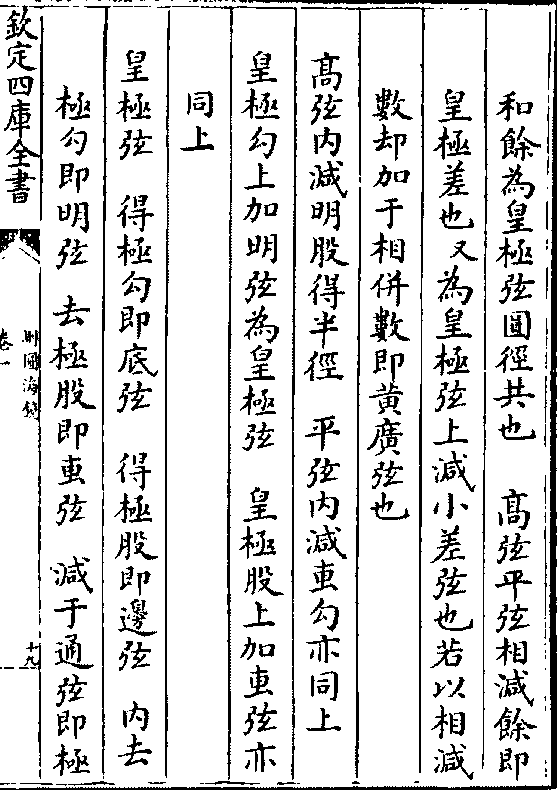 和餘為皇極弦圓徑共也　髙弦平弦相減餘即
皇極差也又為皇極弦上減小差弦也若以相減
數却加于相併數即黄廣弦也
髙弦内減明股得半徑　平弦内減叀勾亦同上
皇極勾上加明弦為皇極弦　皇極股上加叀弦亦
同上
皇極弦　得極勾即底弦　得極股即邊弦　内去
極勾即明弦　去極股即叀弦　減于通弦即極
欽定四庫全書
測圓海鏡
卷一
十九